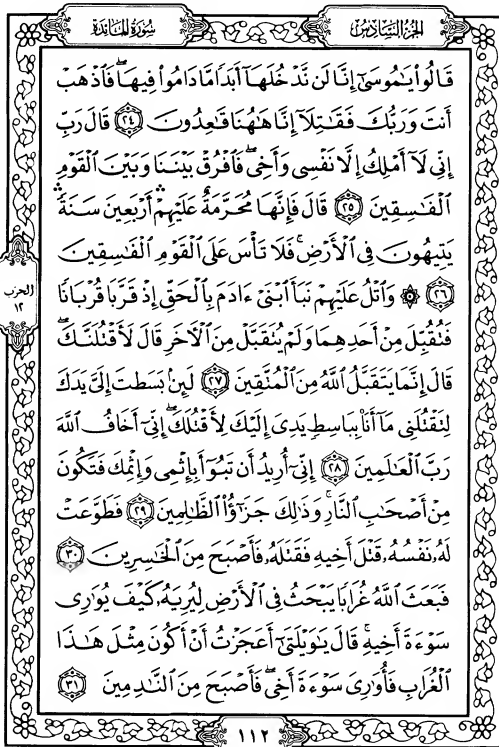 سُورَةُ المَائدَة
الجُزءُ السَّادِس
قَالُوا۟ يَـٰمُوسَىٰٓ إِنَّا لَن نَّدْخُلَهَآ أَبَدًا مَّا دَامُوا۟ فِيهَا ۖ فَٱذْهَبْ
أَنتَ وَرَبُّكَ فَقَـٰتِلَآ إِنَّا هَـٰهُنَا قَـٰعِدُونَ ٢٤ قَالَ رَبِّ
إِنِّى لَآ أَمْلِكُ إِلَّا نَفْسِى وَأَخِى ۖ فَٱفْرُقْ بَيْنَنَا وَبَيْنَ ٱلْقَوْمِ
ٱلْفَـٰسِقِينَ ٢٥ قَالَ فَإِنَّهَا مُحَرَّمَةٌ عَلَيْهِمْ ۛ أَرْبَعِينَ سَنَةً ۛ
يَتِيهُونَ فِى ٱلْأَرْضِ ۚ فَلَا تَأْسَ عَلَى ٱلْقَوْمِ ٱلْفَـٰسِقِينَ
٢٦ ۞ وَٱتْلُ عَلَيْهِمْ نَبَأَ ٱبْنَىْ ءَادَمَ بِٱلْحَقِّ إِذْ قَرَّبَا قُرْبَانًا
فَتُقُبِّلَ مِنْ أَحَدِهِمَا وَلَمْ يُتَقَبَّلْ مِنَ ٱلْـَٔاخَرِ قَالَ لَأَقْتُلَنَّكَ ۖ
قَالَ إِنَّمَا يَتَقَبَّلُ ٱللَّهُ مِنَ ٱلْمُتَّقِينَ ٢٧ لَئِنۢ بَسَطتَ إِلَىَّ يَدَكَ
لِتَقْتُلَنِى مَآ أَنَا۠ بِبَاسِطٍ يَدِىَ إِلَيْكَ لِأَقْتُلَكَ ۖ إِنِّىٓ أَخَافُ ٱللَّهَ
رَبَّ ٱلْعَـٰلَمِينَ ٢٨ إِنِّىٓ أُرِيدُ أَن تَبُوٓأَ بِإِثْمِى وَإِثْمِكَ فَتَكُونَ
مِنْ أَصْحَـٰبِ ٱلنَّارِ ۚ وَذَٰلِكَ جَزَٰٓؤُا۟ ٱلظَّـٰلِمِينَ ٢٩ فَطَوَّعَتْ
لَهُۥ نَفْسُهُۥ قَتْلَ أَخِيهِ فَقَتَلَهُۥ فَأَصْبَحَ مِنَ ٱلْخَـٰسِرِينَ ٣٠
فَبَعَثَ ٱللَّهُ غُرَابًا يَبْحَثُ فِى ٱلْأَرْضِ لِيُرِيَهُۥ كَيْفَ يُوَٰرِى
سَوْءَةَ أَخِيهِ ۚ قَالَ يَـٰوَيْلَتَىٰٓ أَعَجَزْتُ أَنْ أَكُونَ مِثْلَ هَـٰذَا
ٱلْغُرَابِ فَأُوَٰرِىَ سَوْءَةَ أَخِى ۖ فَأَصْبَحَ مِنَ ٱلنَّـٰدِمِينَ ٣١
الحزب
١٢
١١٢